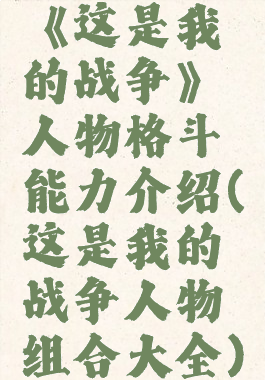 《这是我
的战争》
人物格斗
能力介绍(
这是我的
战争人物
组合大全)